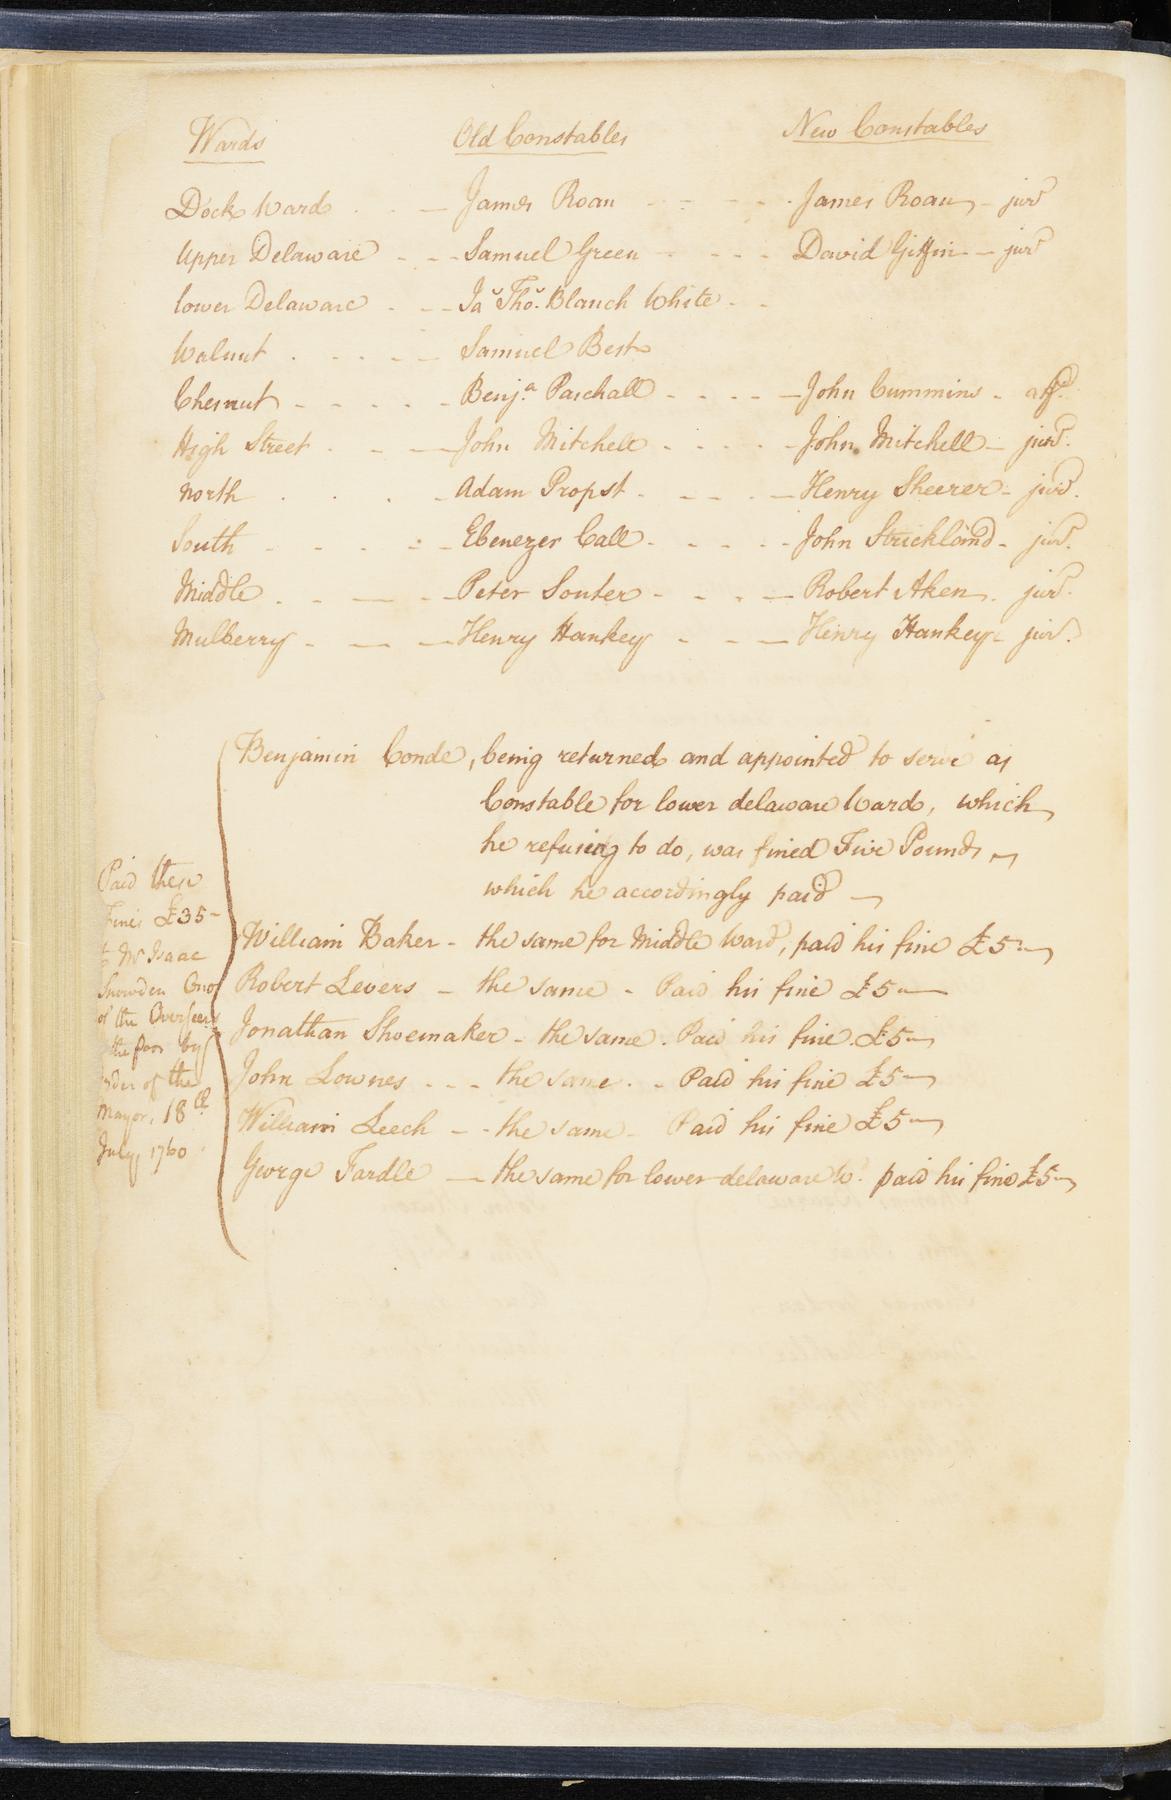 Wards Old Constables New Constables
Dock Ward - James Roan - - - - James Roan - jurd
Upper Delaware - - - Samuel Green - - - - David Giffin - jurd
lower Delaware - - - Jas Thos. Blanch White - -
Walnut - - - - Samuel Best
Chesnut - - - - - Benja. Paschall - - - - John Cummins - affd.
High Street - - - John Mitchell - - - - John Mitchell - jurd.
North . . . - Adam Propst - - - - Henry Sheerer - jurd.
South - - - - - Ebenezer Call - - - - John Strickland - jurd.
Middle - - - - Peter Souter - - - - Robert Aken - jurd.
Mulberry - - - Henry Hankey - - - Henry Hankey - jurd.
Benjamin Conde, being returned and appointed to serve as
Constable for lower delaware Ward, which
he refusing to do, was fined Five Pounds,
which he accordingly paid
William Baker - the same for Middle Ward, paid his fine £5
Robert Levers - the same - Paid his fine £5
Jonathan Shoemaker - the same. Paid his fine £5
John Lownes - - - the same. - Paid his fine £5
William Leech - - the same - Paid his fine £5
George Fardle - the same for lower delaware Wd. paid his fine £5
Paid these
Fines £35 -
to Mr Isaac
Snowden One
of the Overseers
the poor by
order of the
Mayor, 18th
July, 1760